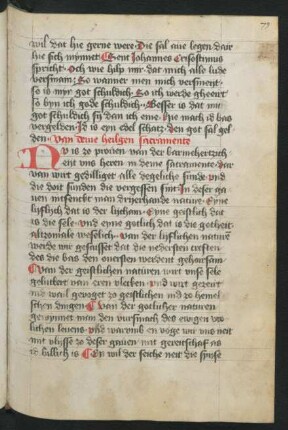 wil dat hie gerne were Die sal aue legen dair
hie sich mynnet Sent Johannes Crisostimus
spricht Och wie hilp mir dat mich alle lude
versmain So wanner men mich versmeit
so is myr got schuldich So ich werde gheeirt
so byn ich gode schuldich Besser is dat mir
got schuldich sy dan ich eme Hie mach id bas
vergelden Id is eyn edel schatz Den got sal gel
den Van deme heilgen sacramente
DIt is zo prouen van der barmehertzich
eit uns heren in deme sacramente Dar
van wirt gedilliget alle degeliche sunde vnd
die doit sunden die vergessen sint In deser ga
uen intfenckt man drijerhande nature Eyne
lijflich dat is der licham Eyne geistlich dat
is die sele vnd eyne gotlich dat is die gotheit
altzomale weselich Van der lijflichen naturen
werde wir gesusset dat die nedersten creften
des die bas den ouersten werdent gehorsam
Van der geistlichen naturen wirt vnse sele
geluttert van eren vleken vnd wirt gezeret
vnd wail geweget zo geistlichen vnd zo hemel
schen dingen Van der gotlicher naturen
gewynnet man den vursmach des ewigen vro
lichen leuens vnd warumb en moge wir vns neit
mit vlisse zo deser gauen mit gereitschaf as
id billich is Ein wil der seiche neit die spijse